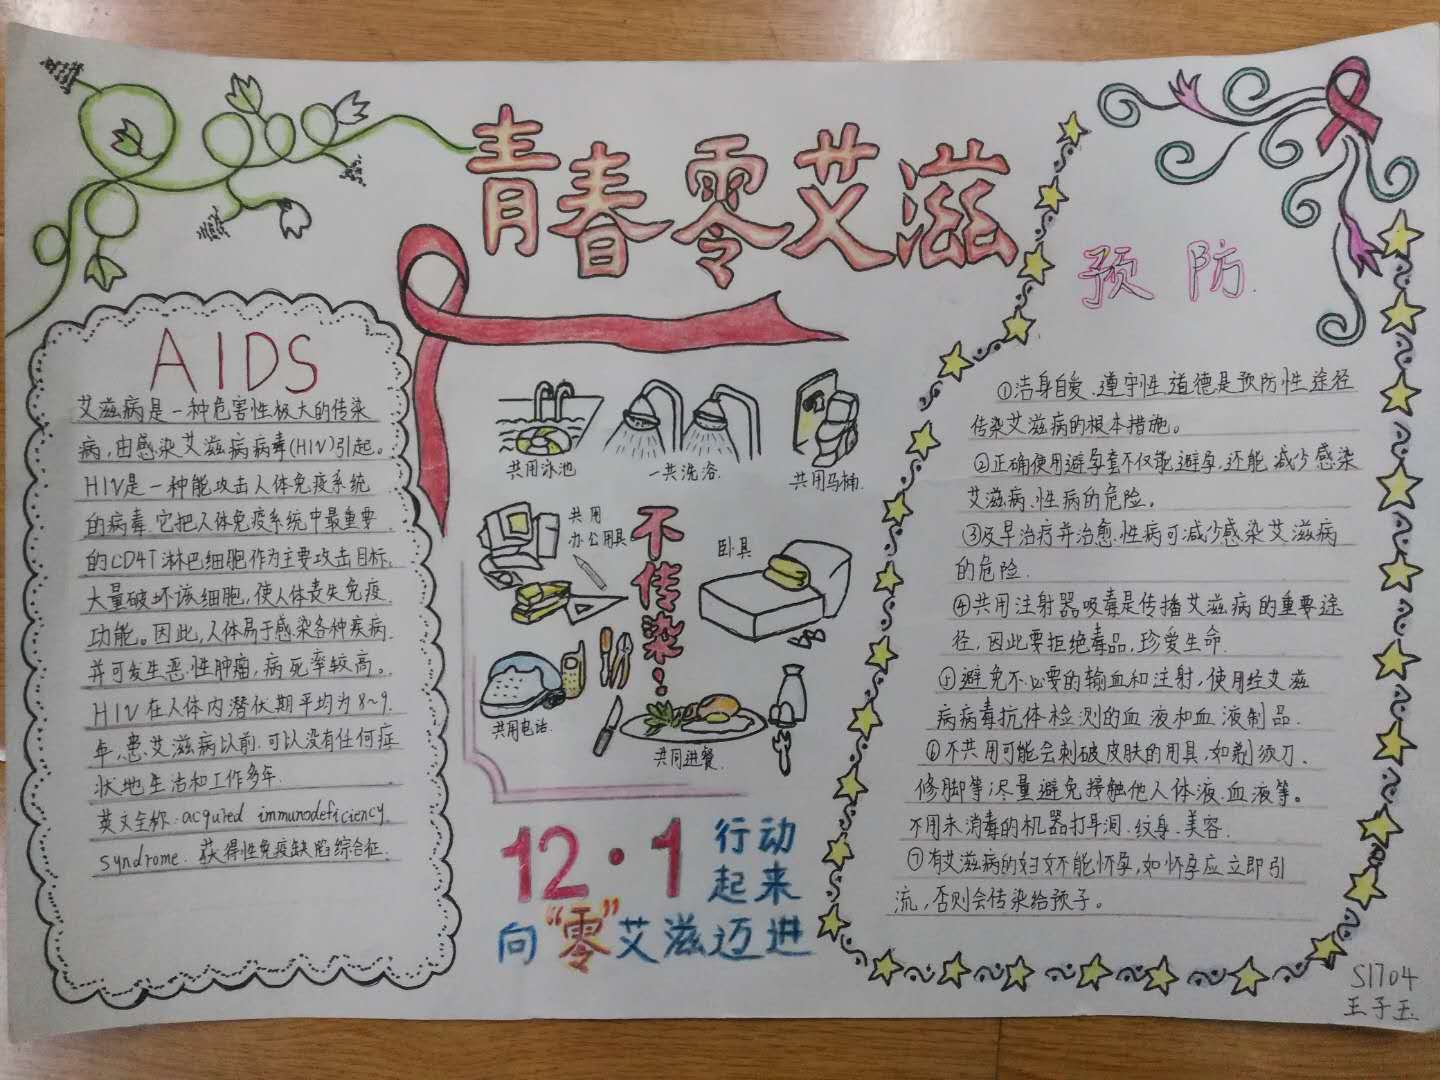 青春零艾滋
AIDS
艾滋病是一种危害性极大的传染
病,由感染艾滋病病毒(HIV)引起。
HIV是一种能攻击人体免疫系统
的病毒.它把人体免疫系统中最重要
的CD4T淋巴细胞作为主要攻击目标,
大量破坏该细胞,使人体丧失免疫
功能。因此,人体易于感染各种疾病.
并可发生恶性肿瘤,病死率较高。
HIV在人体内潜伏期平均为8~9
年,患艾滋病以前.可以没有任何症
状地生活和工作多年.
英文全称:acquired immunodeficiency
syndrome.获得性免疫缺陷综合征.
共用泳池
一共洗浴.
共用马桶.
共用
办公用具
不传染:
卧具
共用电话.
共同进餐.
12·1
行动
起来
向“零”艾滋迈进
预防.
①洁身自爱、遵守性道德是预防性途径
传染艾滋病的根本措施。
②正确使用避孕套不仅能避孕,还能减少感染
艾滋病、性病的危险。
③及早治疗并治愈性病可减少感染艾滋病
的危险.
④共用注射器吸毒是传播艾滋病的重要途
径,因此要拒绝毒品,珍爱生命.
⑤避免不必要的输血和注射,使用经艾滋
病病毒抗体检测的血液和血液制品.
⑥不共用可能会刺破皮肤的用具,如剃须刀.
修脚等;尽量避免接触他人体液、血液等。
不用未消毒的机器打耳洞.纹身.美容.
⑦有艾滋病的妇女不能怀孕,如怀孕应立即引
流,否则会传染给孩子。
S1704
王子玉